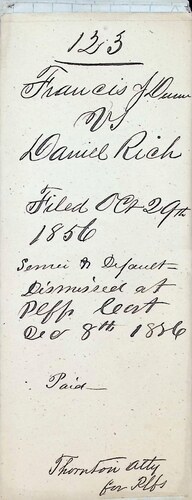 123
Francis J Dunn
Vs
Daniel Rich
Filed Oct 29th
1856
Service & Default
Dismissed at
Plffs Cost
Dec 8th 1856
Paid
Thornton Atty
for Plffs